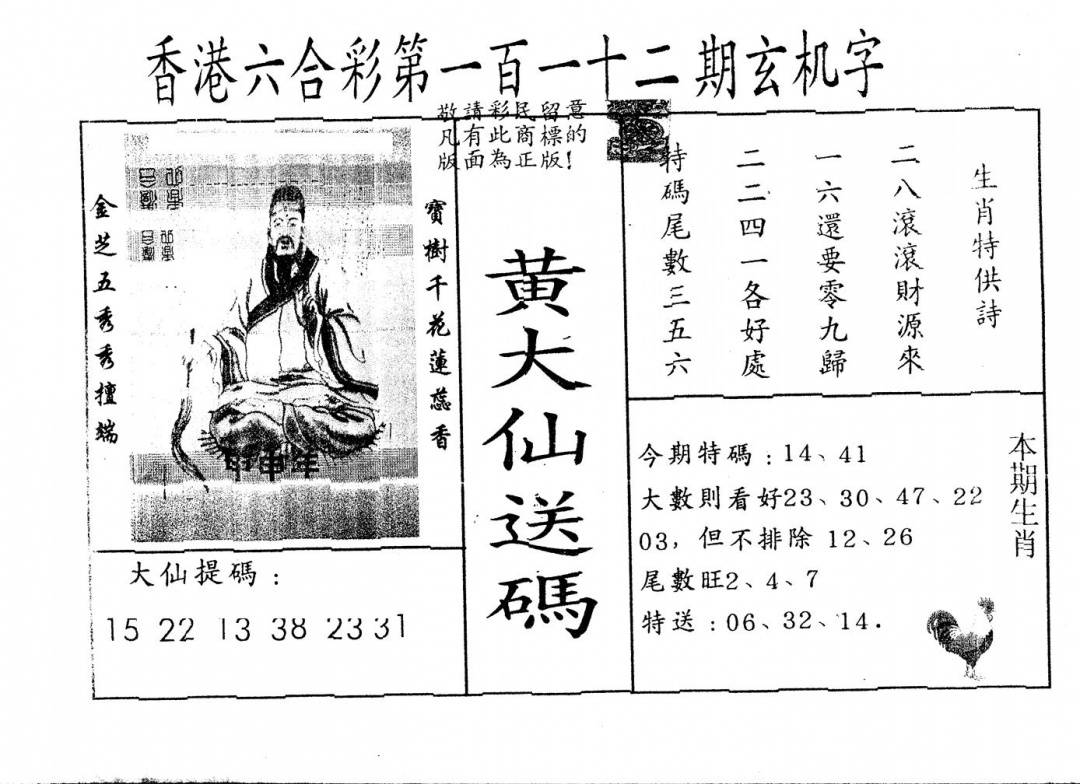 香港六合彩第一百一十二期玄机字
敬請彩民留意
凡有此商標的
版面為正版!
生肖特供詩
二八滾滾財源來
一六還要零九歸
二二四一各好處
特碼尾數三五六
寶樹千花蓮蕊香
金芝五秀秀擅端
黄大仙送碼
大仙提碼:
15 22 13 38 23 31
本期生肖
今期特碼:14、41
大數則看好23、30、47、22
03，但不排除 12、26
尾數旺2、4、7
特送:06、32、14.